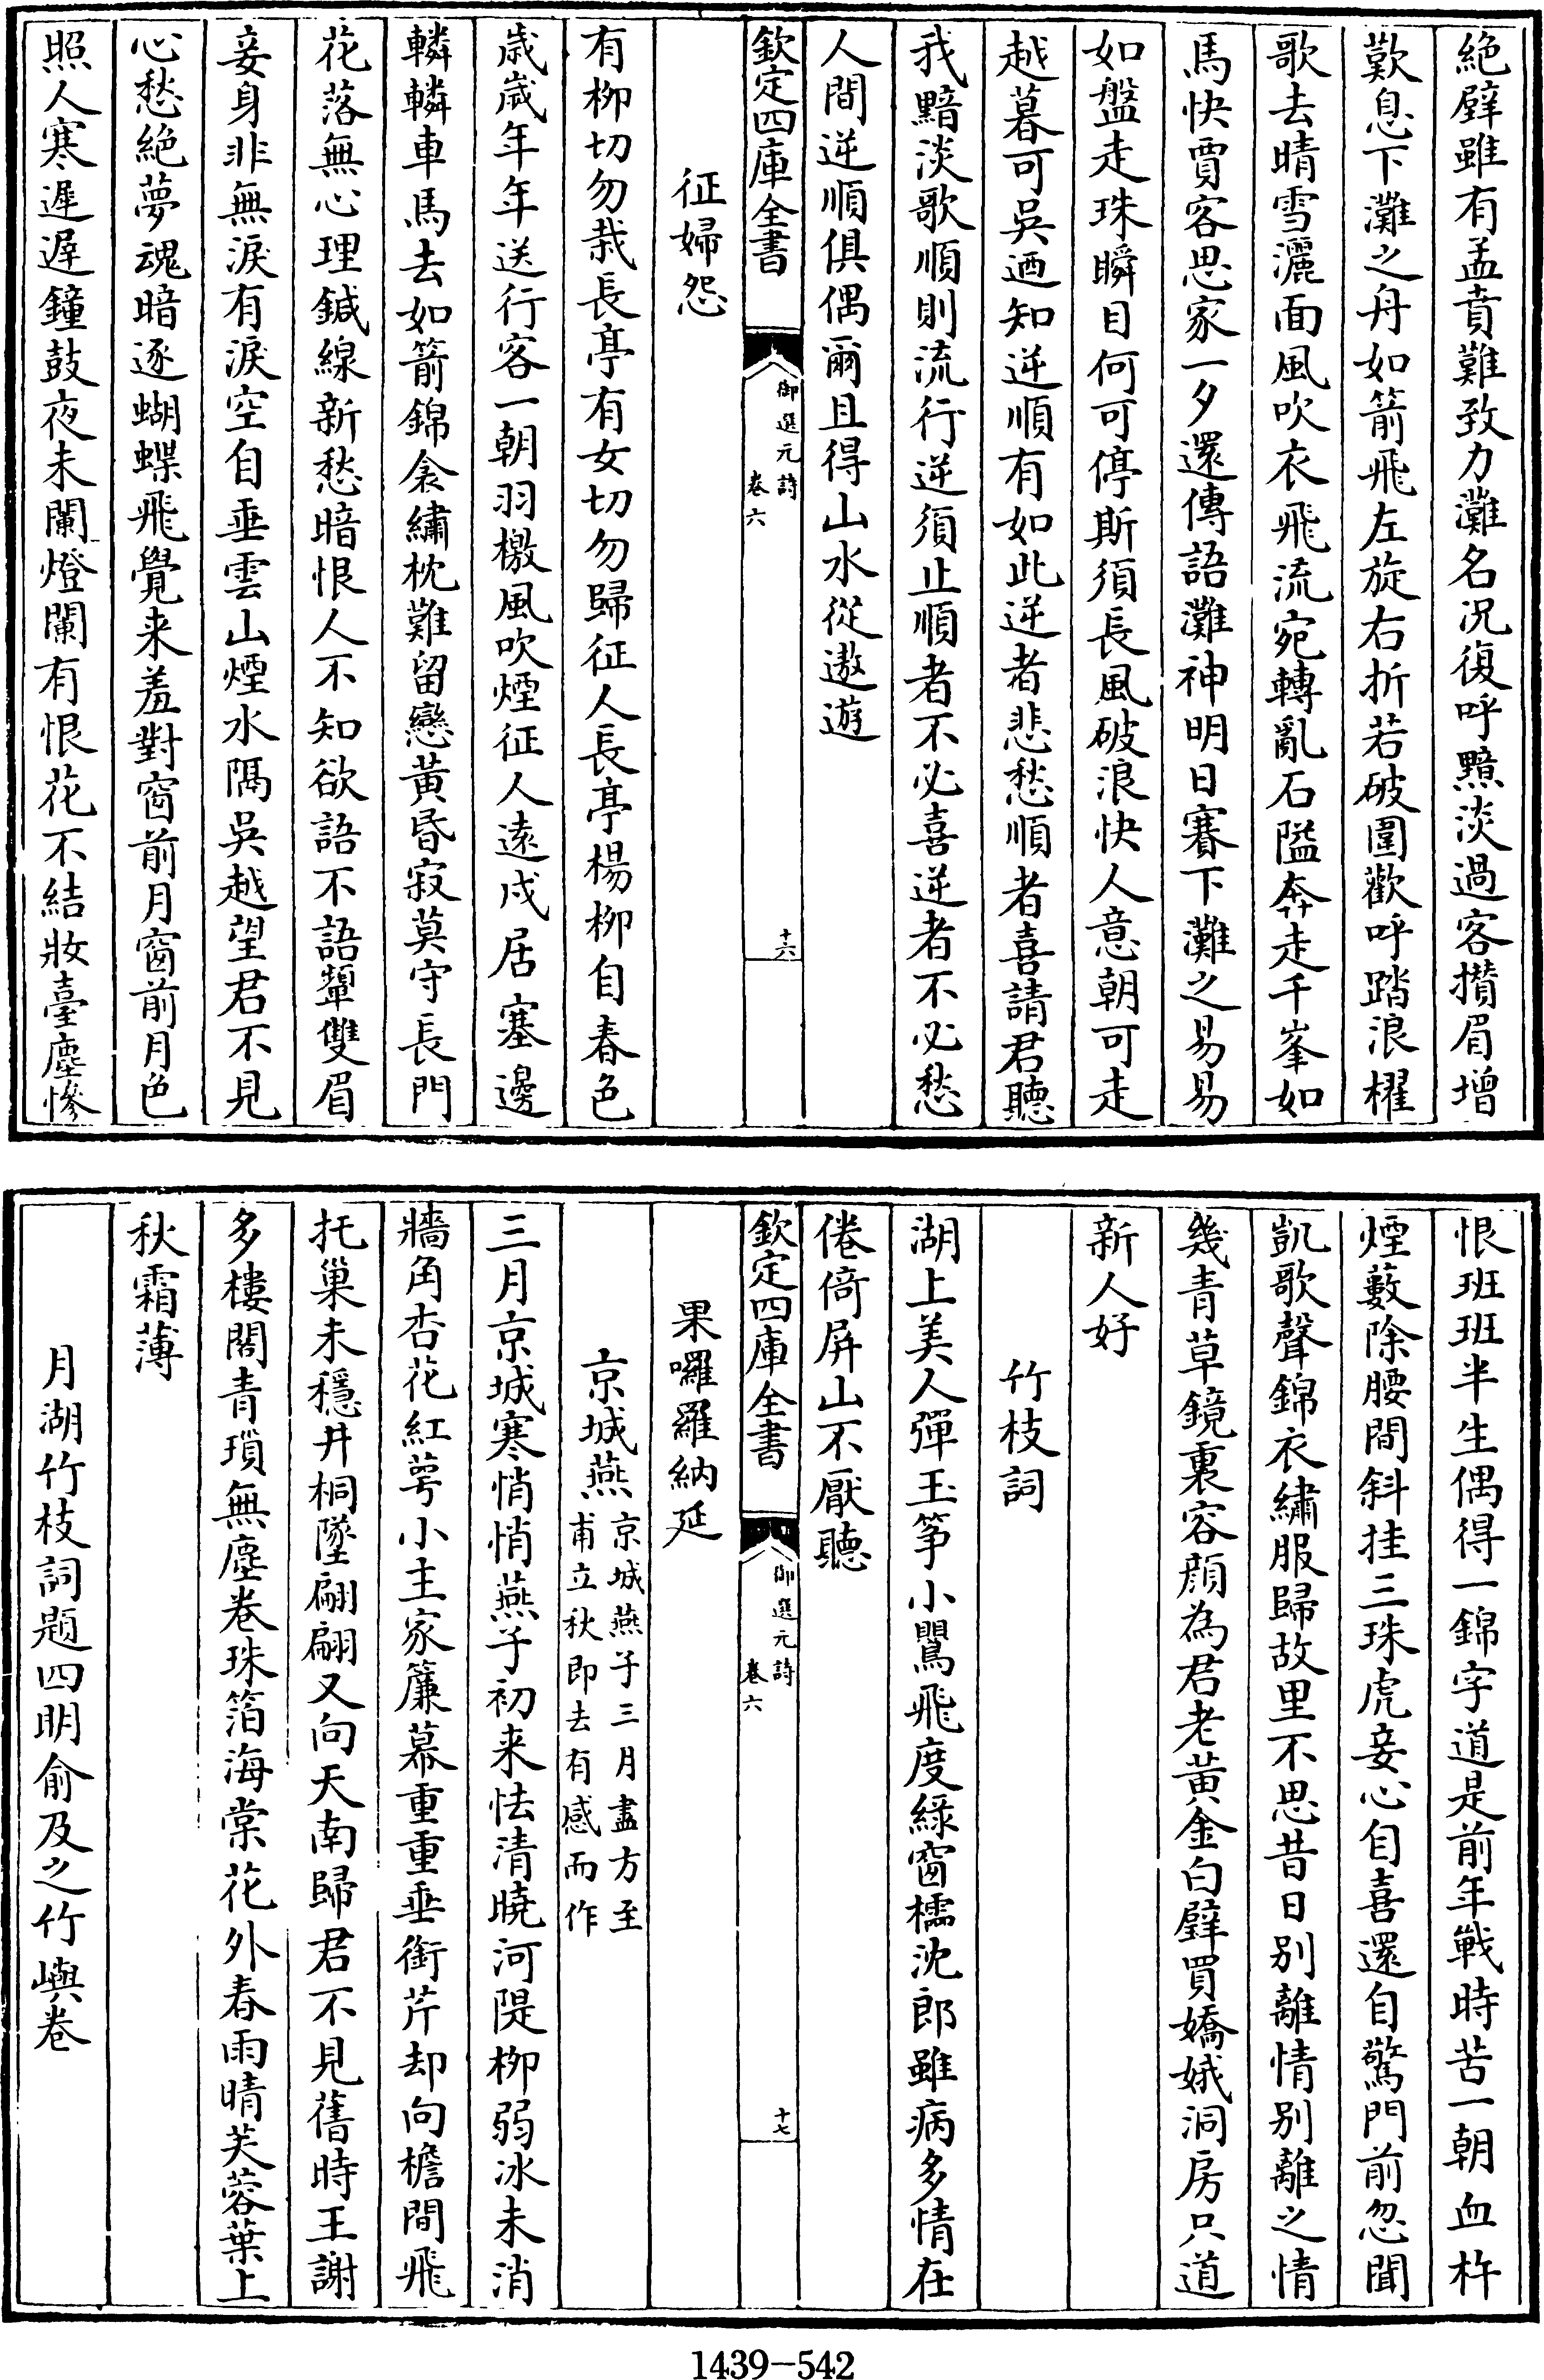 絶壁雖有孟賁難致力灘名况復呼黯淡過客攢眉增
歎息下灘之舟如箭飛左旋右折若破圍歡呼踏浪櫂
歌去晴雪灑面風吹衣飛流宛轉亂石隘奔走千峯如
馬快賈客思家一夕還傳語灘神明日賽下灘之易易
如盤走珠瞬目何可停斯須長風破浪快人意朝可走
越暮可吳廼知逆順有如此逆者悲愁順者喜請君聽
我黯淡歌順則流行逆須止順者不必喜逆者不必愁
人間逆順俱偶爾且得山水從遨遊
欽定四庫全書
御選元詩
卷六
十六
征婦怨
有柳切勿栽長亭有女切勿歸征人長亭楊柳自春色
歲歲年年送行客一朝羽檄風吹煙征人遠戍居塞邊
轔轔車馬去如箭錦衾繡枕難留戀黃昏寂莫守長門
花落無心理鍼線新愁暗恨人不知欲語不語顰雙眉
妾身非無淚有淚空自垂雲山煙水隔吳越望君不見
心愁絶夢魂暗逐蝴蝶飛覺来羞對窗前月窗前月色
照人寒遲遲鐘鼓夜未闌燈闌有恨花不結妝臺塵慘
恨班班半生偶得一錦字道是前年戰時苦一朝血杵
煙藪除腰間斜挂三珠虎妾心自喜還自驚門前忽聞
凱歌聲錦衣繡服歸故里不思昔日别離情别離之情
幾青草鏡裏容顔為君老黄金白璧買嬌娥洞房只道
新人好
竹枝詞
湖上美人彈玉筝小鸎飛度綠窗櫺沈郎雖病多情在
倦倚屏山不厭聽
欽定四庫全書
御選元詩
卷六
十七
果囉羅納延
京城燕京城燕子三月盡方至
甫立秋即去有感而作
三月京城寒悄悄燕子初来怯清曉河隄柳弱冰未消
牆角杏花紅萼小主家簾幕重重垂銜芹却向檐間飛
托巢未穩井桐墜翩翩又向天南歸君不見舊時王謝
多樓閣青瑣無塵卷珠箔海棠花外春雨晴芙蓉葉上
秋霜薄
月湖竹枝詞題四明俞及之竹嶼卷
1439-542